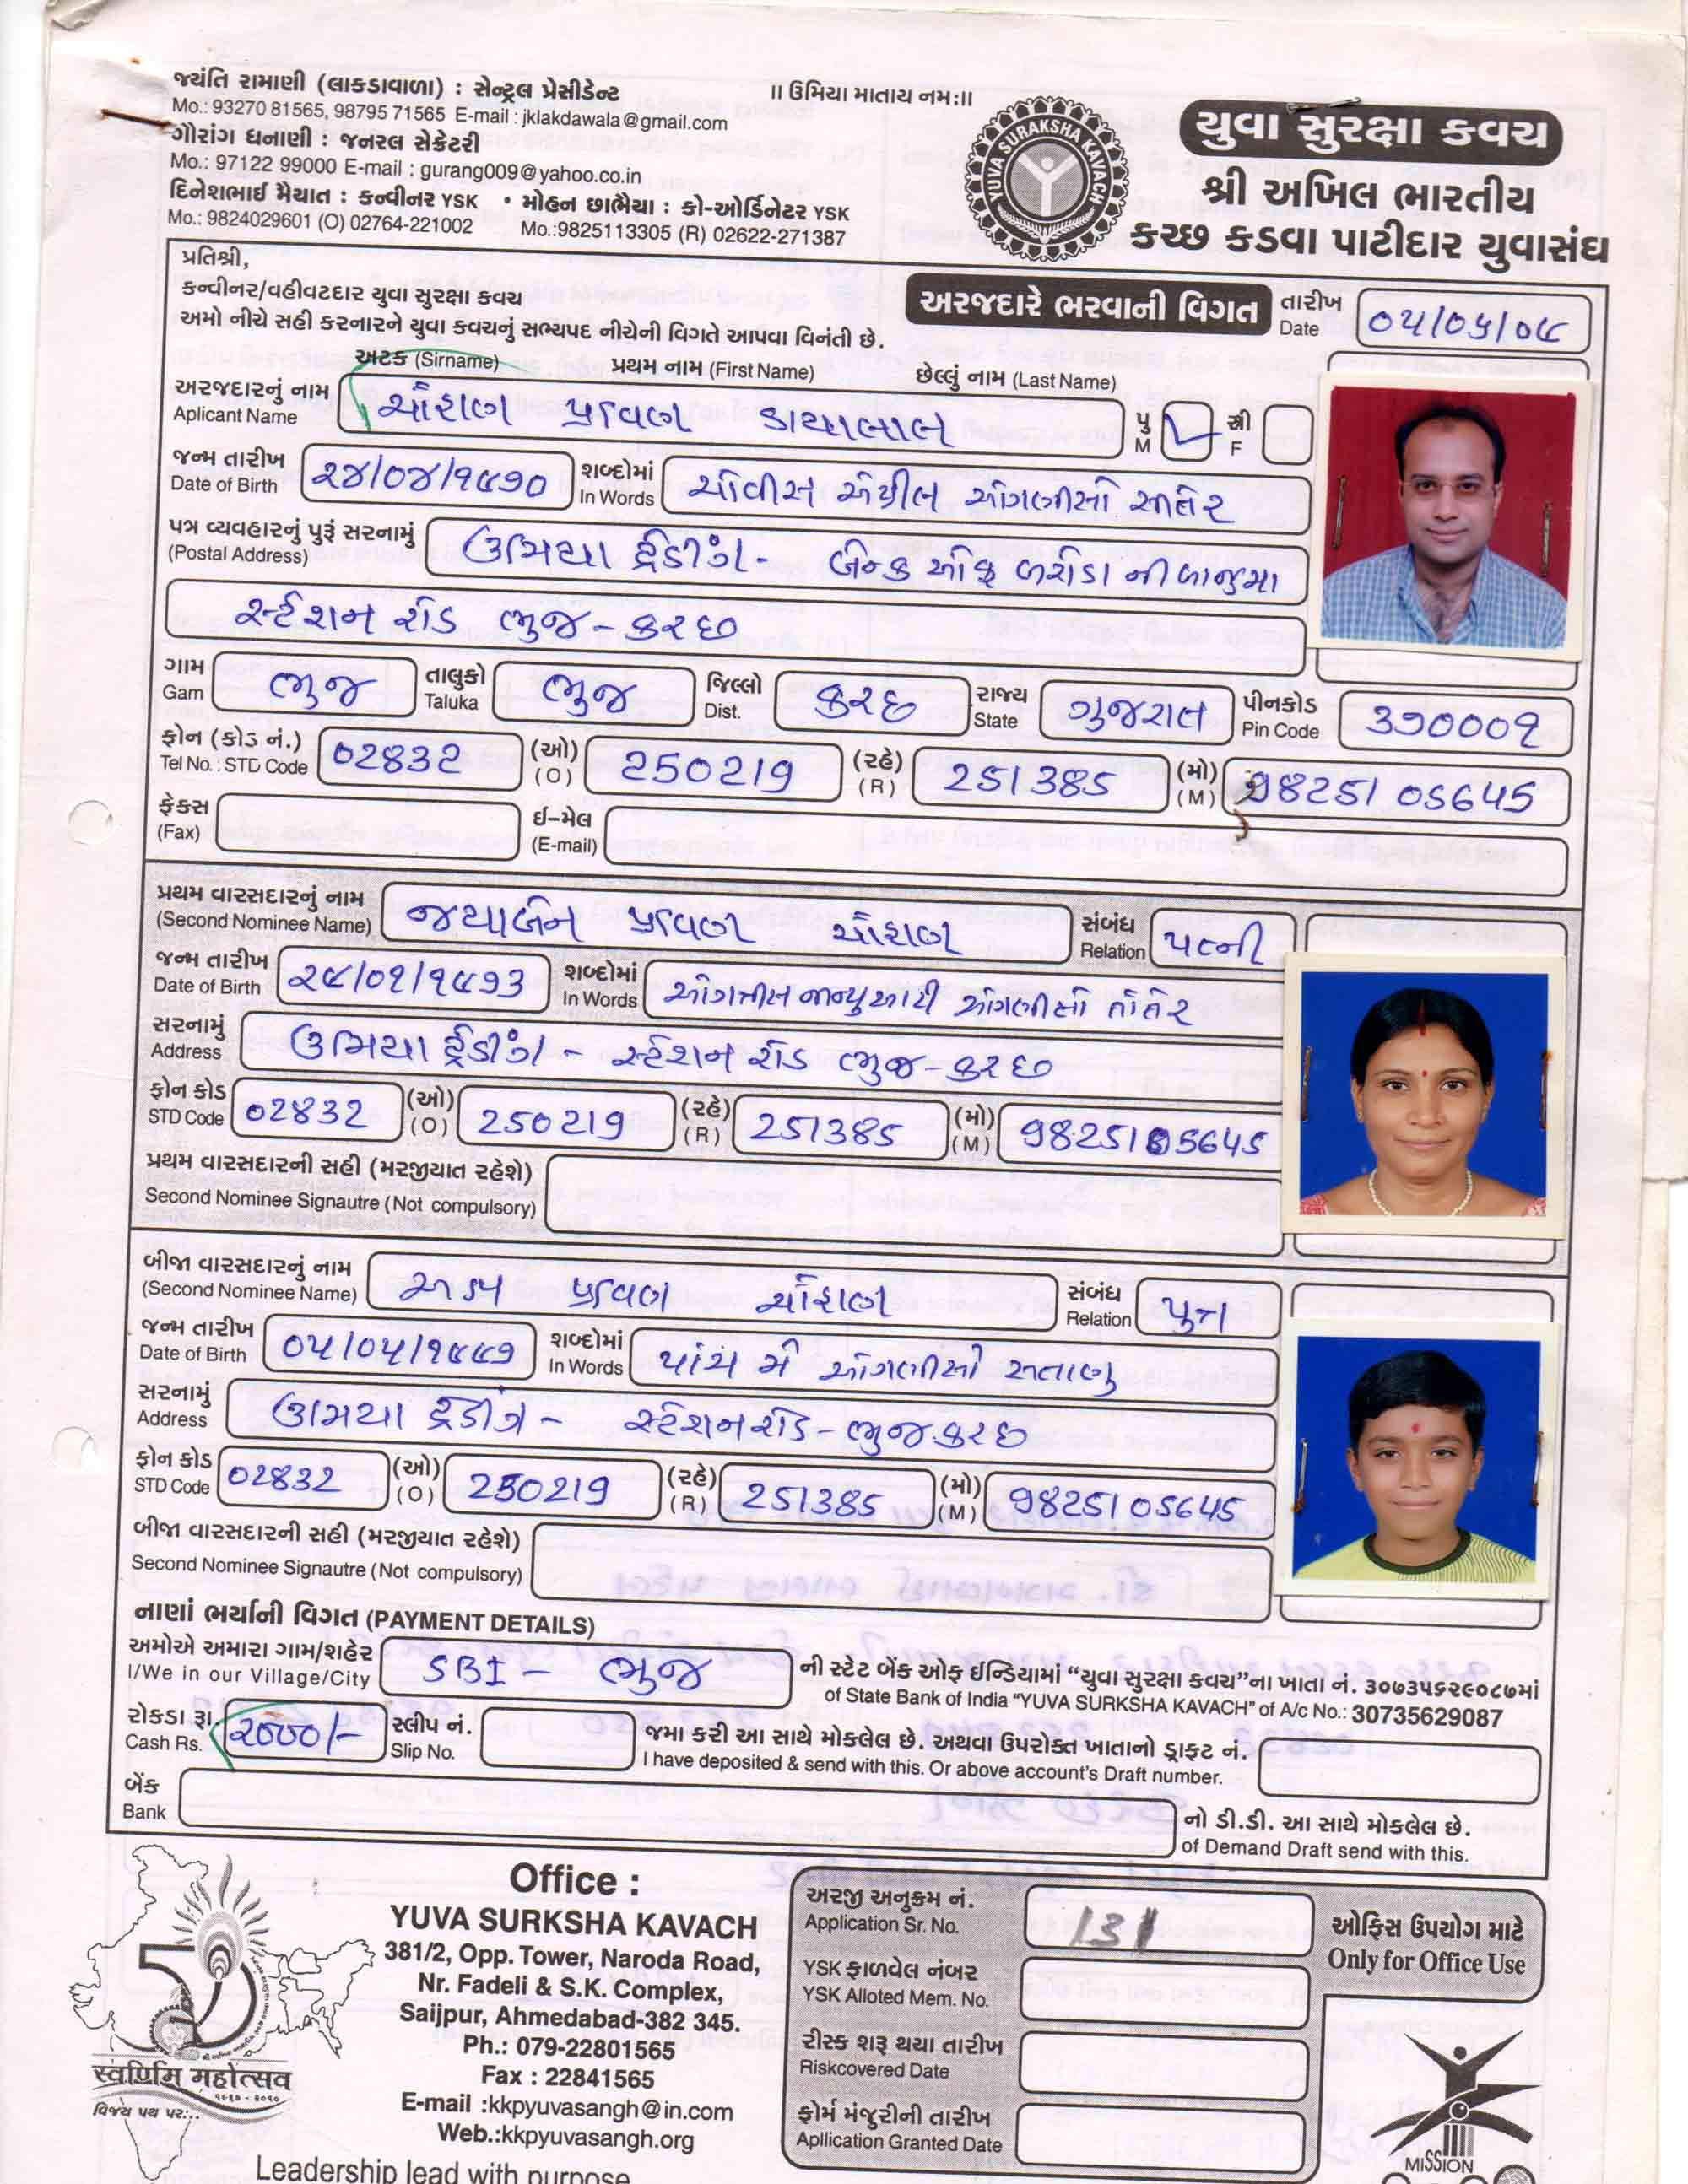 જ્યંતિ રામાણી (લાકડાવાળા) : સેન્ટ્રલ પ્રેસીડેન્ટ
Mo.: 93270 81565, 98795 71565 E-mail : jklakdawala@gmail.com
ગૌરાંગ ધનાણી : જનરલ સેક્રેટરી
Mo.: 97122 99000 E-mail : gurang009@yahoo.co.in
દિનેશભાઈ મૈયાત : કન્વીનર YSK • મોહન છાભૈયા : કો-ઓર્ડિનેટર YSK
Mo.: 9824029601 (O) 02764-221002 Mo.:9825113305 (R) 02622-271387
॥ ઉમિયા માતાય નમ:॥
YUVA SURAKSHA KAVACH
યુવા સુરક્ષા કવચ
શ્રી અખિલ ભારતીય
કચ્છ કડવા પાટીદાર યુવાસંઘ
પ્રતિશ્રી,
કન્વીનર/વહીવટદાર યુવા સુરક્ષા કવચ
અમો નીચે સહી કરનારને યુવા કવચનું સભ્યપદ નીચેની વિગતે આપવા વિનંતી છે.
અરજદારે ભરવાની વિગત
તારીખ
Date ૦૫/૦૫/૦૯
અટક (Sirname) પ્રથમ નામ (First Name) છેલ્લું નામ (Last Name)
અરજદારનું નામ
Aplicant Name ચૌહાણ પ્રવિણ ડાયાલાલ પુ M સ્ત્રી F
જન્મ તારીખ
Date of Birth ૨૪/૦૪/૧૯૭૦ શબ્દોમાં In Words ચોવીસ એપ્રીલ ઓગણીસો સીતેર
પત્ર વ્યવહારનું પુરૂં સરનામું
(Postal Address) ઉમિયા ટ્રેડીંગ - બેન્ક ઓફ બરોડા ની બાજુમા
સ્ટેશન રોડ ભુજ - કચ્છ
ગામ Gam ભુજ તાલુકો Taluka ભુજ જિલ્લો Dist. કચ્છ રાજ્ય State ગુજરાત પીનકોડ Pin Code ૩૭૦૦૦૧
ફોન (કોડ નં.)
Tel No. : STD Code 02832 (ઓ) (O) 250219 (રહે) (R) 251385 (મો) (M) 98251 05645
ફેક્સ (Fax) ઈ-મેલ (E-mail)
પ્રથમ વારસદારનું નામ
(Second Nominee Name) જયાબેન પ્રવિણ ચૌહાણ સંબંધ Relation પત્ની
જન્મ તારીખ
Date of Birth ૨૯/૦૧/૧૯૭૩ શબ્દોમાં In Words ઓગત્રીસ જાન્યુઆરી ઓગણીસો તોતેર
સરનામું
Address ઉમિયા ટ્રેડીંગ - સ્ટેશન રોડ ભુજ - કચ્છ
ફોન કોડ
STD Code 02832 (ઓ) (O) 250219 (રહે) (R) 251385 (મો) (M) 9825105645
પ્રથમ વારસદારની સહી (મરજીયાત રહેશે)
Second Nominee Signautre (Not compulsory)
બીજા વારસદારનું નામ
(Second Nominee Name) પ્રવિણ ચૌહાણ સંબંધ Relation પુત્ર
જન્મ તારીખ
Date of Birth ૦૫/૦૫/૧૯૯૭ શબ્દોમાં In Words પાંચ મે ઓગણીસો સતાણુ
સરનામું
Address ઉમિયા ટ્રેડીંગ - સ્ટેશન રોડ - ભુજ કચ્છ
ફોન કોડ
STD Code 02832 (ઓ) (O) 250219 (રહે) (R) 251385 (મો) (M) 98251 05645
બીજા વારસદારની સહી (મરજીયાત રહેશે)
Second Nominee Signautre (Not compulsory)
નાણાં ભર્યાની વિગત (PAYMENT DETAILS)
અમોએ અમારા ગામ/શહેર SBI - ભુજ ની સ્ટેટ બેંક ઓફ ઈન્ડિયામાં “યુવા સુરક્ષા કવચ”ના ખાતા નં. ૩૦૭૩૫૬૨૯૦૮૭માં
I/We in our Village/City of State Bank of India “YUVA SURKSHA KAVACH” of A/c No.: 30735629087
રોકડા રૂા. ૨૦૦૦/- સ્લીપ નં. જમા કરી આ સાથે મોકલેલ છે. અથવા ઉપરોક્ત ખાતાનો ડ્રાફ્ટ નં.
Cash Rs. Slip No. I have deposited & send with this. Or above account's Draft number.
બેંક નો ડી.ડી. આ સાથે મોકલેલ છે.
Bank of Demand Draft send with this.
50
સ્વર્ણિમ મહોત્સવ
૧૯૬૦ - ૨૦૧૦
વિજય પથ પર...
Office :
YUVA SURKSHA KAVACH
381/2, Opp. Tower, Naroda Road,
Nr. Fadeli & S.K. Complex,
Saijpur, Ahmedabad-382 345.
Ph.: 079-22801565
Fax : 22841565
E-mail :kkpyuvasangh@in.com
Web.:kkpyuvasangh.org
Leadership lead with purpose
અરજી અનુક્રમ નં.
Application Sr. No. 131
YSK ફાળવેલ નંબર
YSK Alloted Mem. No.
રીસ્ક શરૂ થયા તારીખ
Riskcovered Date
ફોર્મ મંજુરીની તારીખ
Apllication Granted Date
ઓફિસ ઉપયોગ માટે
Only for Office Use
MISSION